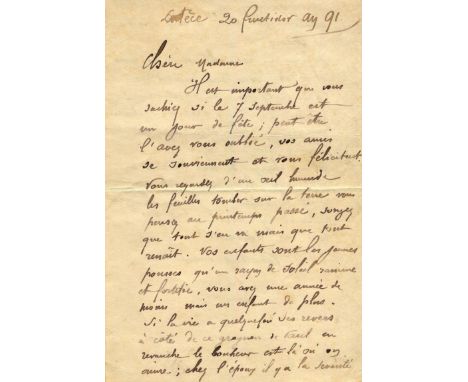 20 fructidor an 91
Chère Madame
Il est important que vous
sachiez si le 7 septembre est
un jour de fête ; peut être
l'avez vous oublié, vos amis
se souviennent et vous félicitent.
Vous regardez d'un œil humide
les feuilles tomber sur la terre vous
pensez au printemps passé, songez
que tout s'en va mais que tout
renaît. Vos enfants sont les jeunes
pousses qu'un rayon de soleil ranime
et fortifie, vous avez une année de
moins mais un enfant de plus.
Si la vie a quelquefois des revers
à côté de ce de en
revanche le bonheur est là où on
aime ; chez l'époux il y a la sécurité